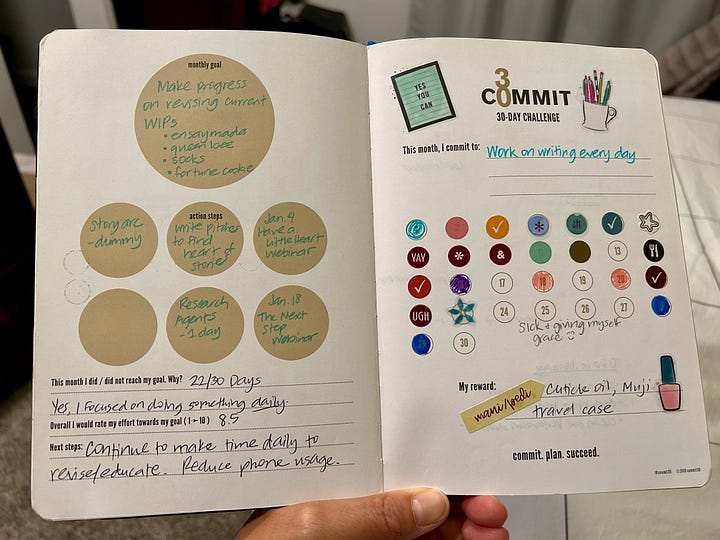 monthly goal
Make progress
on revising current
WIPs
• ensaymada
• queen bee
• socks
• fortune cookie
action steps
Story arc
-dummy
Write pitches
to find
heart of
stories
Jan. 4
Have a
Little Heart
Webinar
Research
Agents
-1 day
Jan. 18
The Next
Step
Webinar
This month I did / did not reach my goal. Why? 22/30 Days
Yes, I focused on doing something daily.
Overall I would rate my effort towards my goal (1 - 10) 8.5
Next steps: Continue to make time daily to
revise/educate. Reduce phone usage.
YES
YOU
CAN
30
COMMIT
30-DAY CHALLENGE
This month, I commit to: Work on writing every day
YAY * & 13
17 18 19 20
UGH 24 25 26 27
Sick & giving myself
grace
30
My reward: Cuticle oil, Muji
travel case
mani/pedi
commit. plan. succeed.